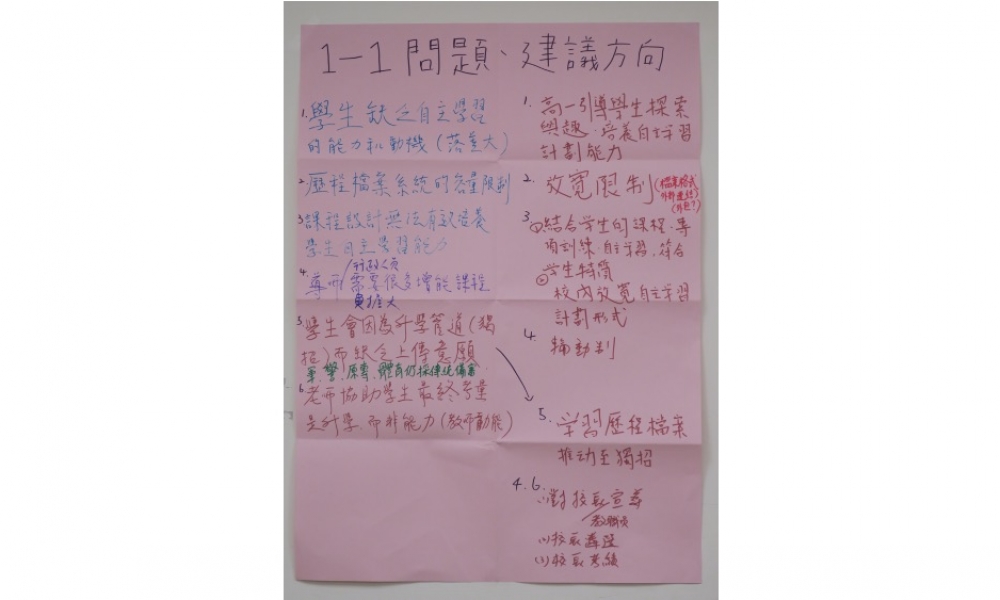 1-1 問題、建議方向
1. 學生缺乏自主學習
的能力和動機(落差大)
2. 歷程檔案系統的容量限制
3. 課程設計無法有效培養
學生自主學習能力
/行政人員
4. 導師需要很多增能課程
擴大
5. 學生會因為升學管道(獨
招)而缺乏上傳意願
軍、警、原專、體育仍採傳統備審
6. 老師協助學生最終考量
是升學,而非能力(教師動能)
1. 高一引導學生探索
興趣.培養自主学習
計劃能力
2. 放寬限制(檔案格式
外部連結)
(外包?)
3. ①結合学生的課程、專
項訓練.自主学習.符合
学生特質
②
校內放寬自主学習
計劃形式
4. 輔動制
5. 学習歷程檔案
推动至獨招
4.6.
(1)對校長宣導
/教職員
(1)校長遴選
(1)校長考績